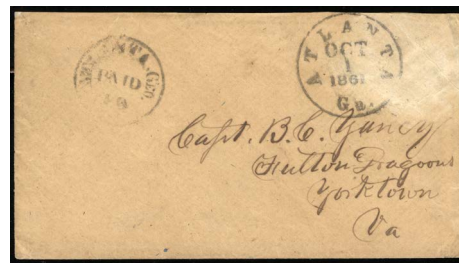 ATLANTA, GEO.
PAID
ATLANTA
OCT
1
1861
Ga.
Capt. B. C. Yancey
Fulton Dragoons
Yorktown
Va